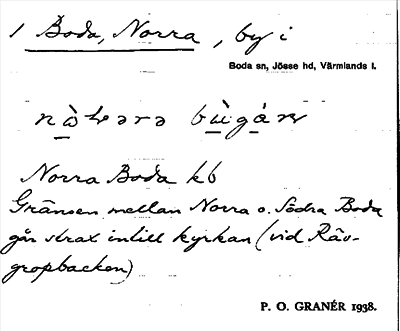 1 Boda, Norra, by i
Boda sn, Jösse hd, Värmlands l.
Norra Boda kb
Gränsen mellan Norra o. Södra Boda
går strax intill kyrkan (vid Räv-
gropbacken)
P. O. GRANÉR 1938.